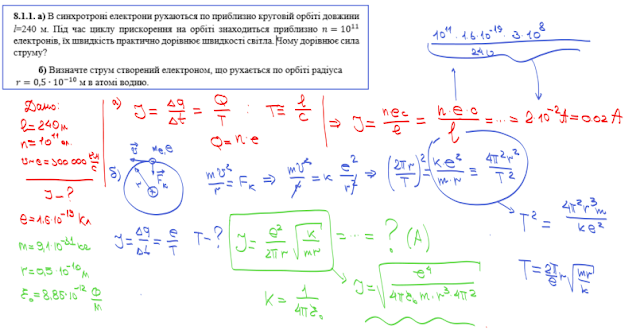 8.1.1. а) В синхротроні електрони рухаються по приблизно круговій орбіті довжини
l=240 м. Під час циклу прискорення на орбіті знаходиться приблизно n = 10¹¹
електронів, їх швидкість практично дорівнює швидкості світла. Чому дорівнює сила
струму?
б) Визначте струм створений електроном, що рухається по орбіті радіуса
r = 0,5 · 10⁻¹⁰ м в атомі водню.
10¹¹ · 1.6·10⁻¹⁹ · 3·10⁸
240
Дано:
l = 240 м
n = 10¹¹ ел.
v = c = 300 000 км/с
J - ?
e = 1.6·10⁻¹⁹ Кл
m = 9,1·10⁻³¹ кг
r = 0,5·10⁻¹⁰ м
ε₀ = 8.85·10⁻¹² Ф/м
а) J = Δq/Δt = Q/T ; T = l/c ⇒ J = nec/l = n·e·c/l = ... = 2·10⁻² A = 0.02 A
Q = n·e
б) v mₑ, e r Fₖ mv²/r = Fₖ ⇒ mv²/r = k e²/r² ⇒ (2πr/T)² = ke²/m·r = 4π²r²/T²
T² = 4π²r³m/ke²
J = Δq/Δt = e/T T - ? J = e²/2πr √k/mr = ... = ? (A)
T = 2π/e r √mr/k
k = 1/4πε₀ J = √e⁴/4πε₀·m·r³·4π²